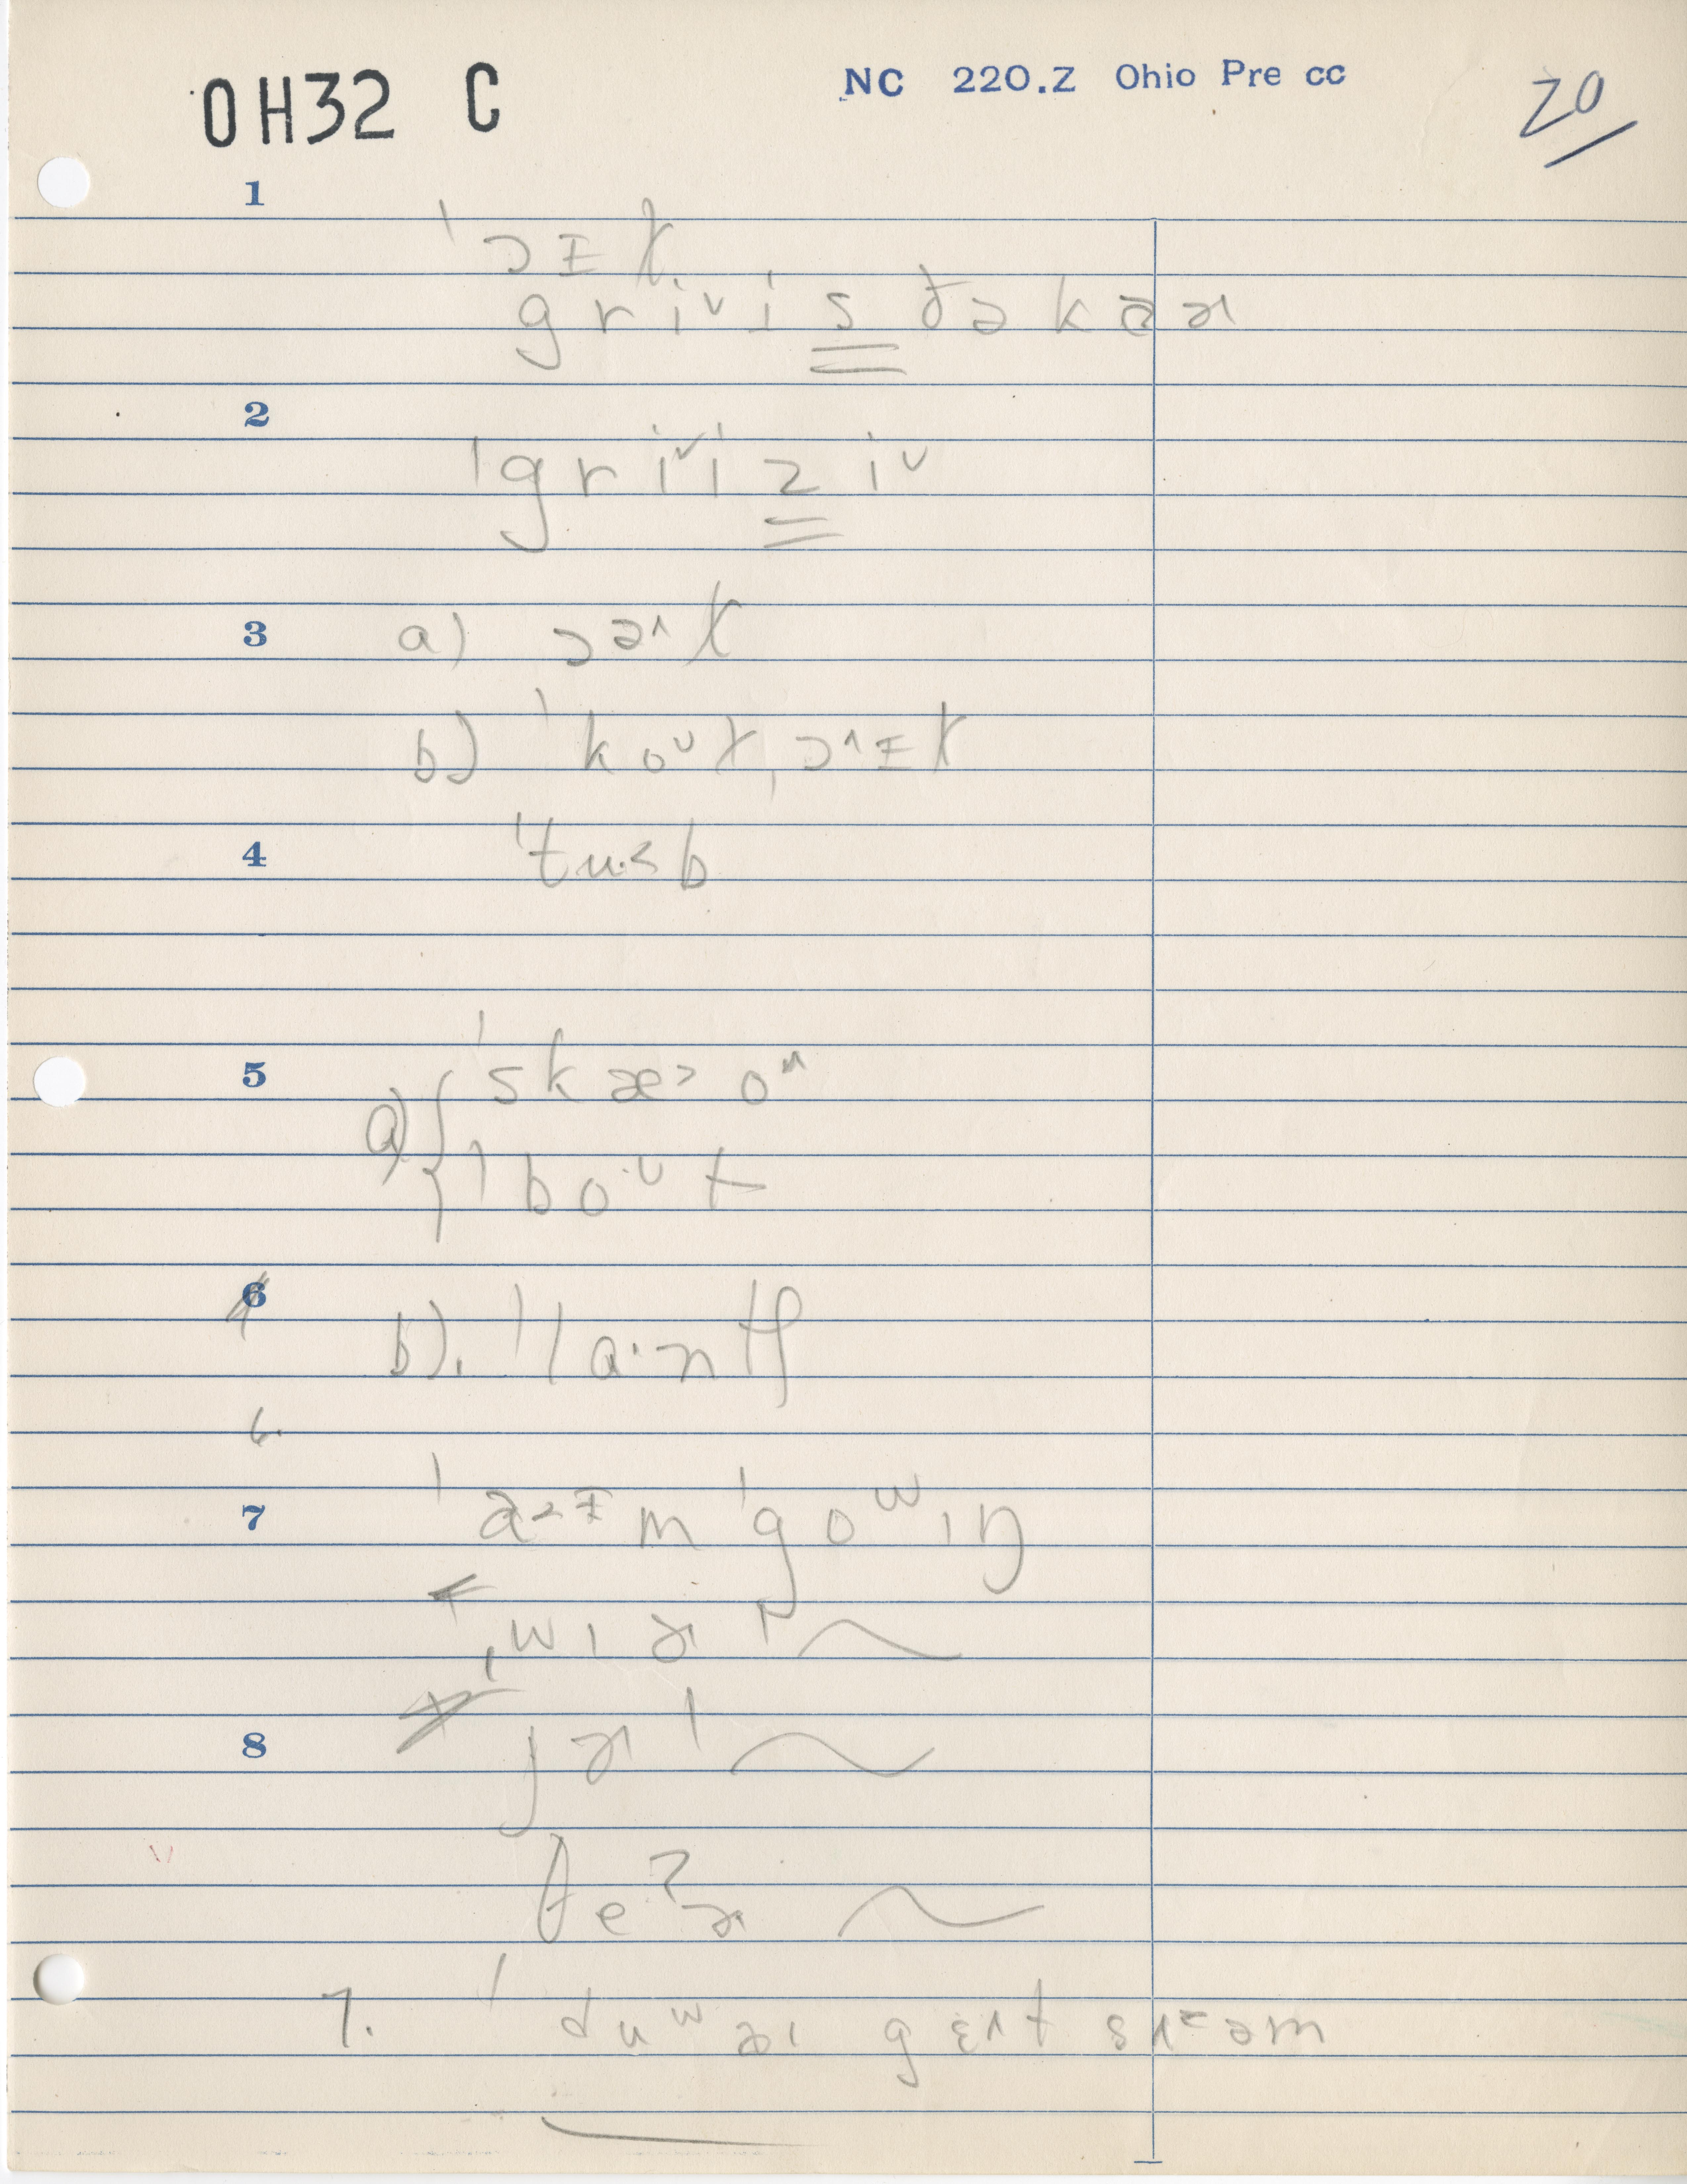 OH32 C NC 220.Z Ohio Pre cc 20
1
ˈɔɪɫ
griᵛis ðəkaɚ
2
ˈgriᵛiziᵛ
3 a) ɔə^ɫ
b) ˈkoᵁɫˌɔ^ɪɫ
4 ˈtu·<b
5 a) ˈskæ>oⁿ
ˈbo·ᵁt
6 b). ˈla·ntʃ
6.
7 ˈa>ɪm ˈgoʷɪŋ
ˌwɪɚ ˈ~
8 jɚ ˈ~
ðeˀɚ ~
7. ˈduʷaɪ gɛ^t s^əm